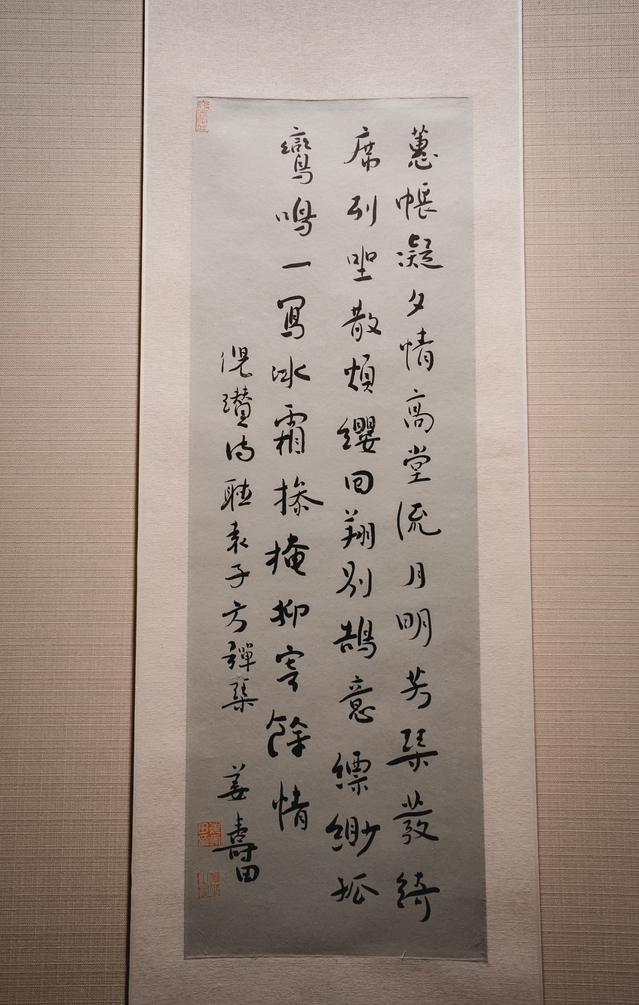 蕙帳凝夕情高堂流月明芳琹發綺
席列坐散煩纓回翔別鵠意縹緲孤
鸞鳴一寫冰霜掺掩抑寄餘情
倪瓚詩聽袁子方彈琹 姜壽田